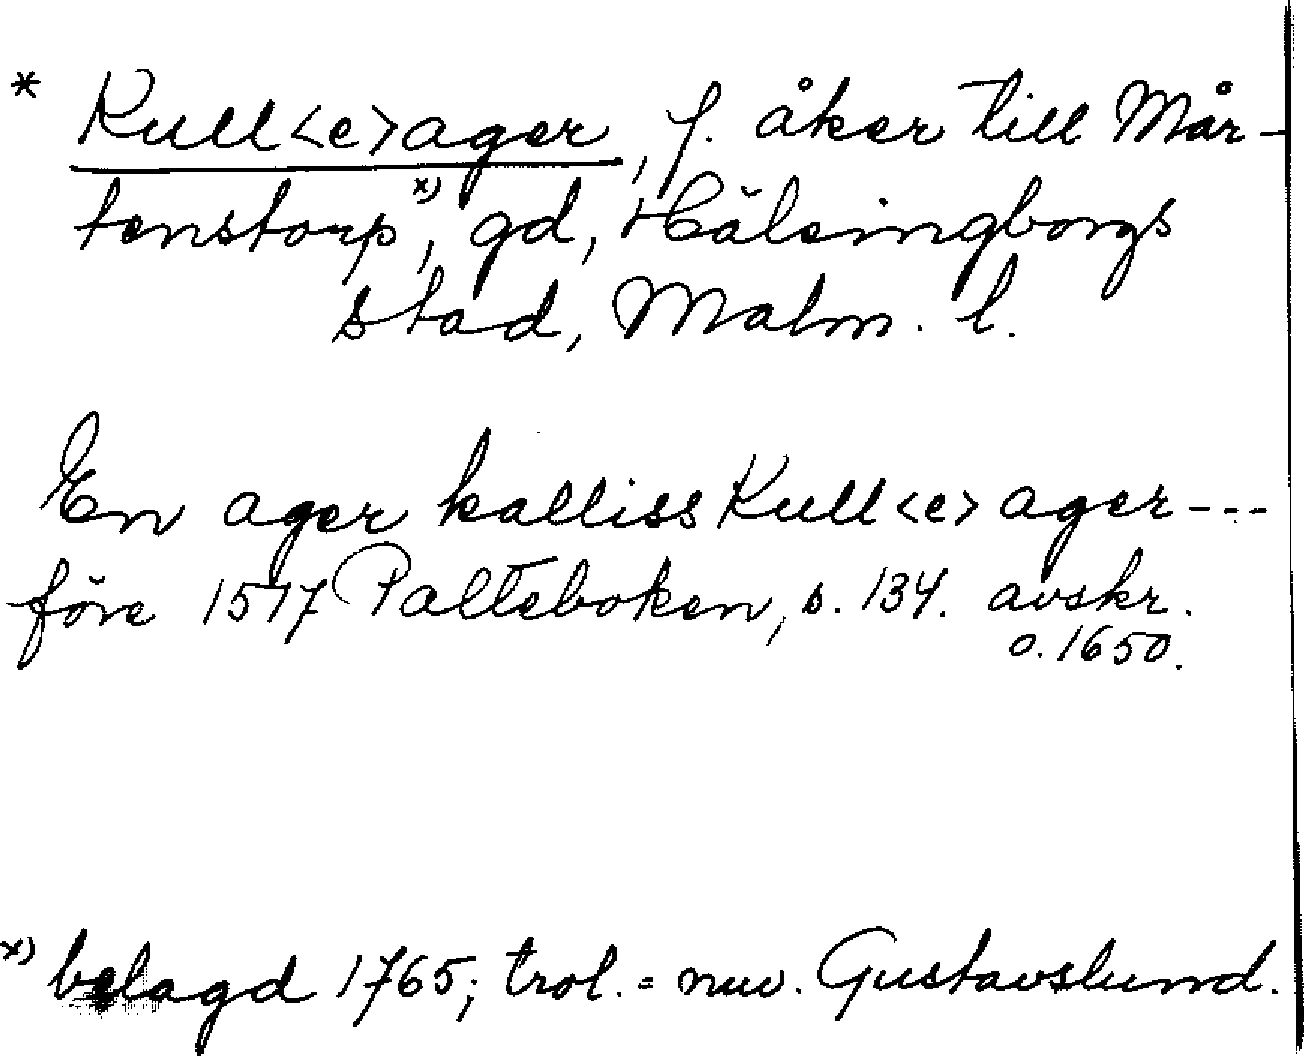 * Kull<e>ager, f. åker till Mår-
tenstorp x), gd, Hälsingborgs
stad, Malm. l.
En ager kalliss Kull<e>ager---
före 1517 Palteboken, s. 134. avskr.
o. 1650.
x) belagd 1765; trol. = nuv. Gustavslund.